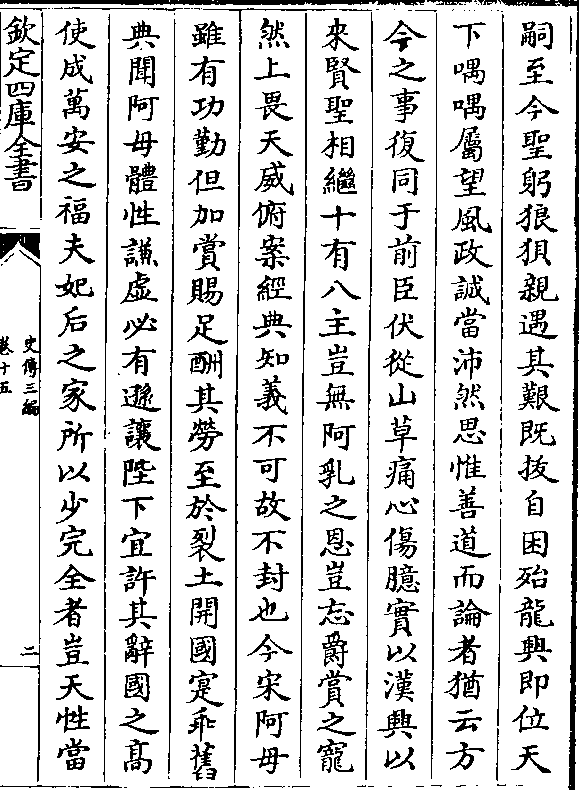 嗣至今聖躬狼狽親遇其艱既拔自困殆龍興即位天
下喁喁屬望風政誠當沛然思惟善道而論者猶云方
今之事復同于前臣伏從山草痛心傷臆實以漢興以
來賢聖相繼十有八主豈無阿乳之恩豈忘爵賞之寵
然上畏天威俯案經典知義不可故不封也今宋阿母
雖有功勤但加賞賜足酬其勞至於裂土開國寔乖舊
典聞阿母體性謙虛必有遜讓陛下宜許其辭國之高
使成萬安之福夫妃后之家所以少完全者豈天性當
欽定四庫全書
史傳三編
卷十五
二